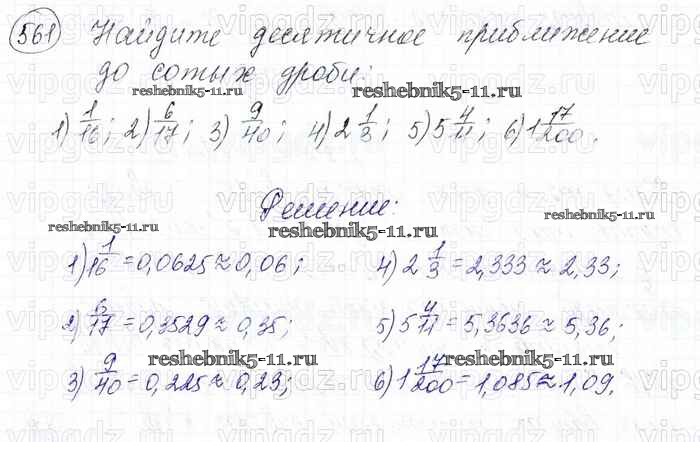 561 Найдите десятичное приближение
до сотых дроби:
reshebnik5-11.ru reshebnik5-11.ru
1) 1/16; 2) 6/17; 3) 9/40; 4) 2 1/3; 5) 5 4/11; 6) 1 17/200.
Решение:
reshebnik5-11.ru reshebnik5-11.ru reshebnik5-11.ru
1) 1/16 = 0,0625 ≈ 0,06; 4) 2 1/3 = 2,333 ≈ 2,33;
2) 6/17 = 0,3529 ≈ 0,35; 5) 5 4/11 = 5,3636 ≈ 5,36;
reshebnik5-11.ru reshebnik5-11.ru
3) 9/40 = 0,225 ≈ 0,23; 6) 1 17/200 = 1,085 ≈ 1,09.
vipgdz.ru